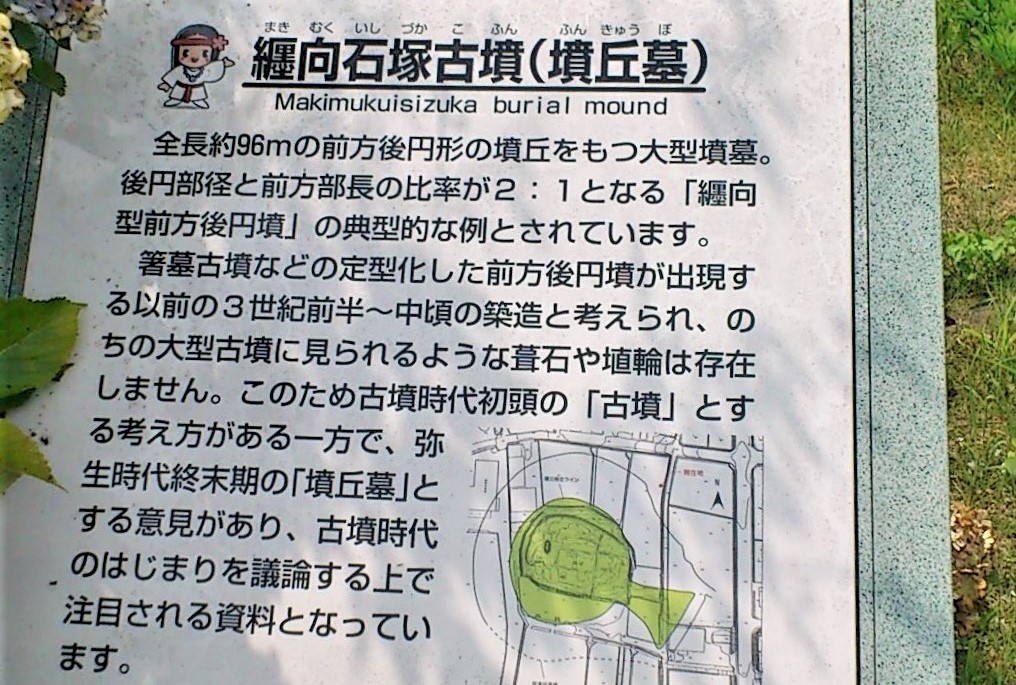 まき むく いし づか こ ふん ふん きゅう ぼ
纒向石塚古墳（墳丘墓）
Makimukuisizuka burial mound
全長約96mの前方後円形の墳丘をもつ大型墳墓。
後円部径と前方部長の比率が２：１となる「纒向
型前方後円墳」の典型的な例とされています。
箸墓古墳などの定型化した前方後円墳が出現す
る以前の３世紀前半～中頃の築造と考えられ、の
ちの大型古墳に見られるような葺石や埴輪は存在
しません。このため古墳時代初頭の「古墳」とす
る考え方がある一方で、弥
生時代終末期の「墳丘墓」と
する意見があり、古墳時代
のはじまりを議論する上で
注目される資料となってい
ます。
現在地
N